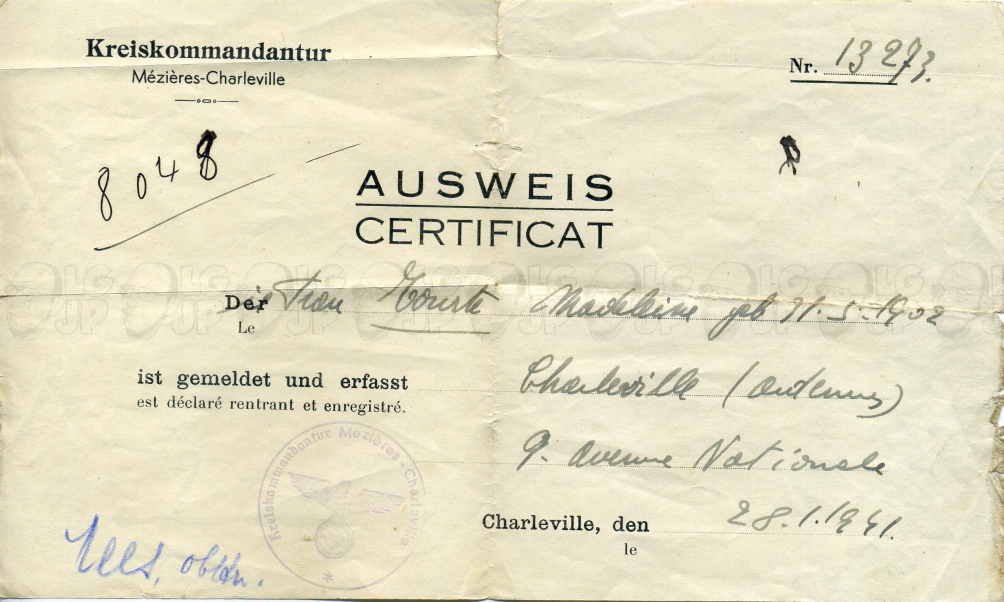 Kreiskommandantur
Mézières-Charleville
Nr. 13 273.
8048
AUSWEIS
CERTIFICAT
Der Frau Madeleine geb 31.5.1902
Le
ist gemeldet und erfasst Charleville (Ardennes)
est déclaré rentrant et enregistré.
9. Avenue Nationale
Kreiskommandantur Mézières-Charleville
Charleville, den 28.1.1941.
le